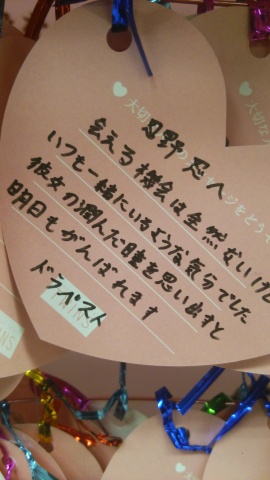 大切な
忍野忍へ
会える機会は全然ないけど
いつも一緒にいるような気らでした
彼女の潤んだ瞳を思い出すと
明日もがんばれます
ドラペスト